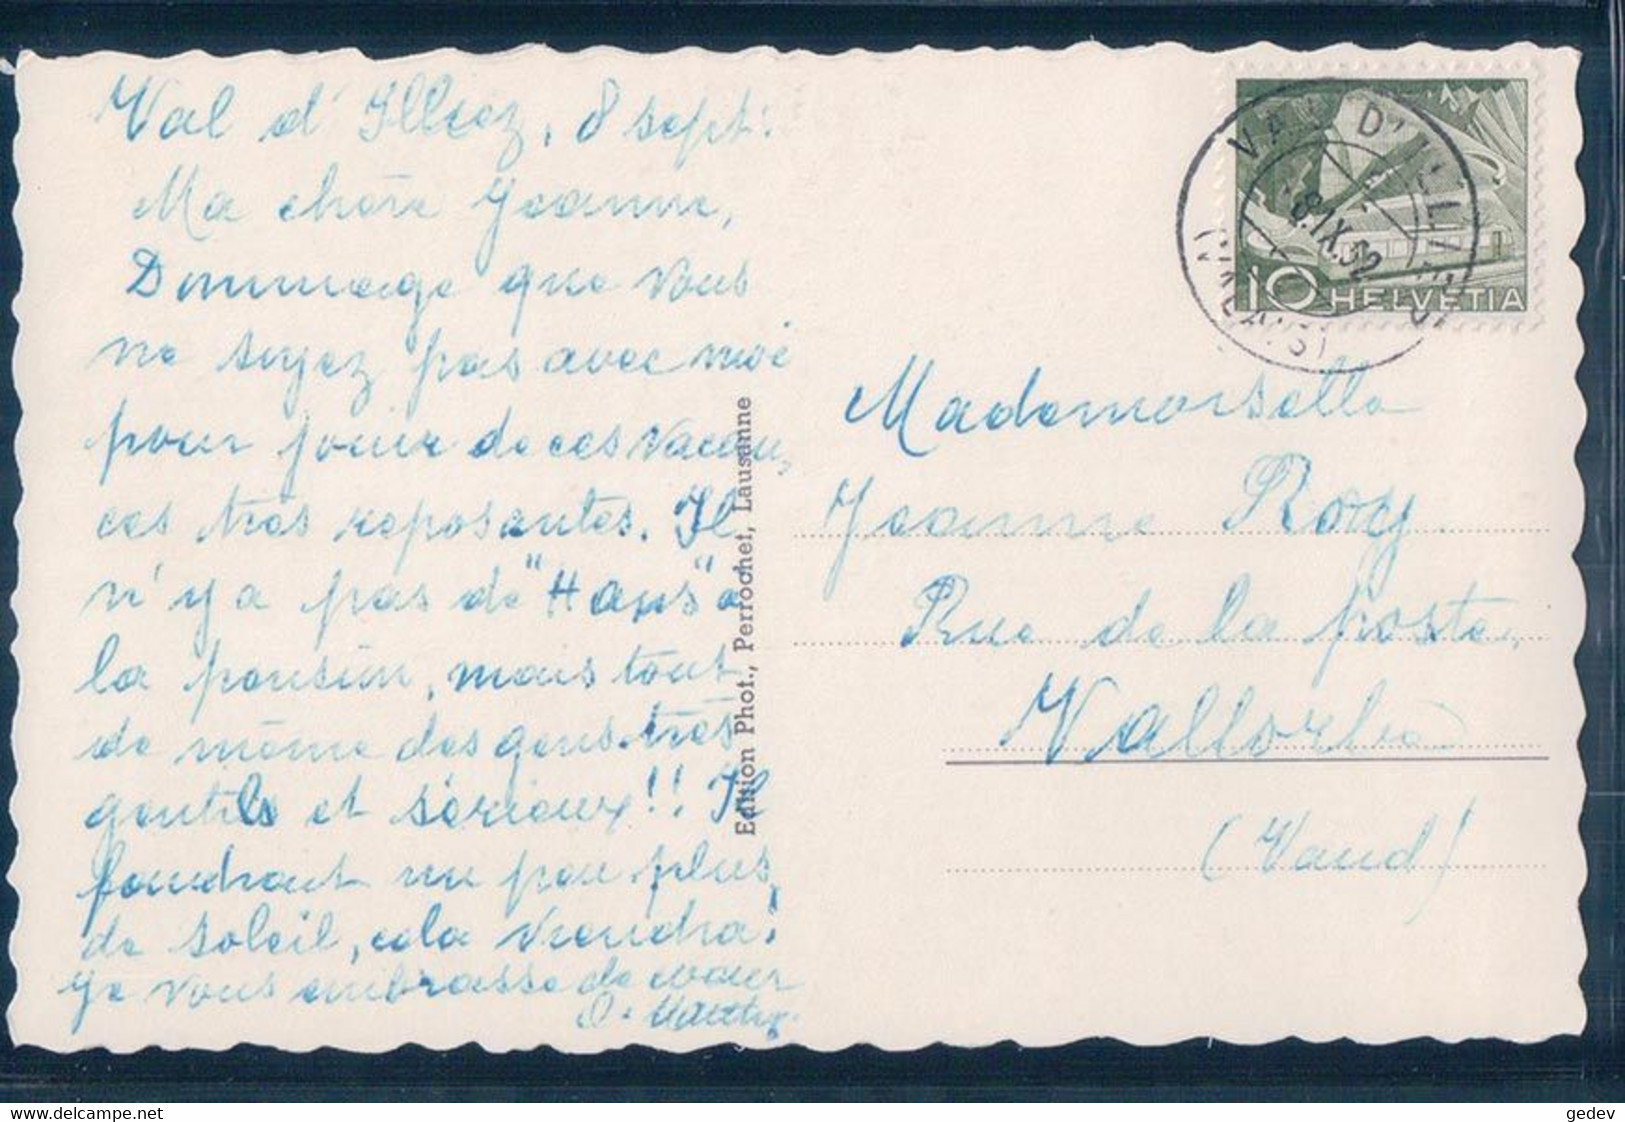 Val d'Illiez, 8 sept.
Ma chère Jeanne,
Dommage que vous
ne soyez pas avec moi
pour jouir de ces vacan-
ces très reposantes. Il
n'y a pas de "Haus" a
la pension, mais tout
de même des gens très
gentils et sérieux!! Il
faudrait un peu plus
de soleil, cela viendra!
Je vous embrasse de cœur
Edition Phot., Perrochet, Lausanne
VAL D'ILLIEZ
8.IX.52
(VALAIS)
10 HELVETIA
Mademoiselle
Jeanne Roy
Rue de la poste,
Vallorbe
(Vaud)
delcampe.net
gedev